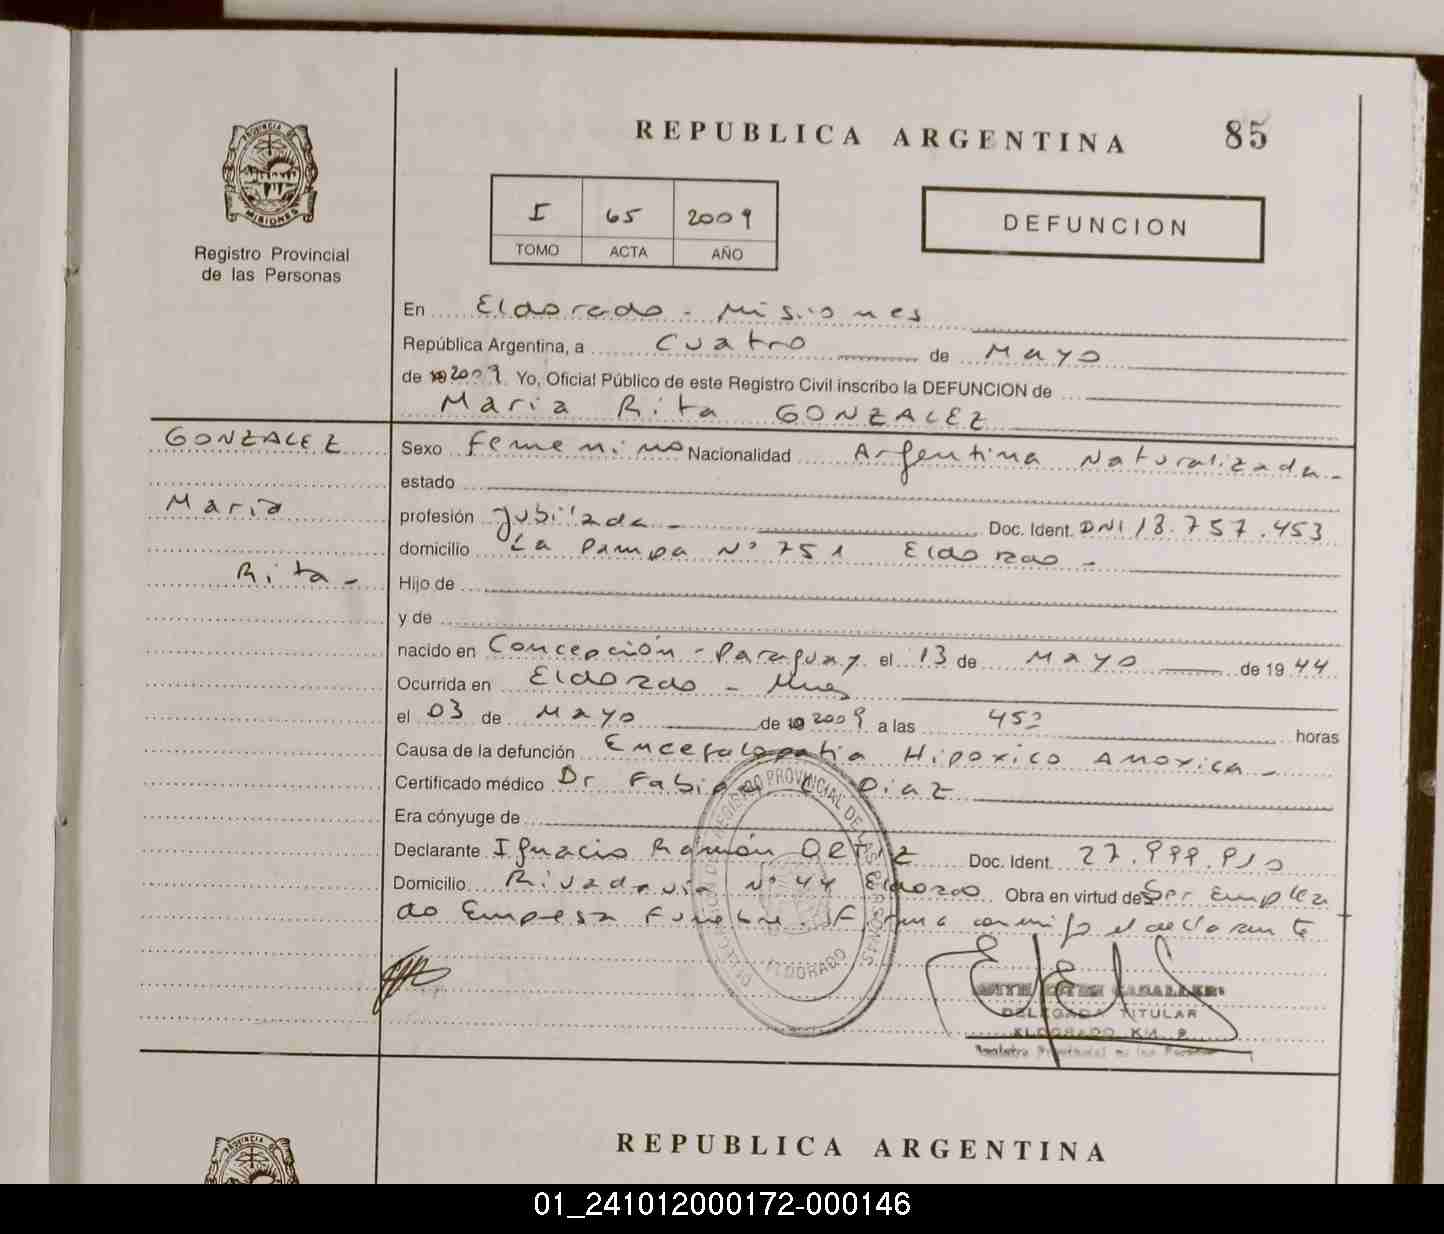 PROVINCIA DE
MISIONES
Registro Provincial
de las Personas
REPUBLICA ARGENTINA 85
I 65 2009
TOMO ACTA AÑO
DEFUNCION
En Eldorado - Misiones
República Argentina, a Cuatro de Mayo
de 2009 Yo, Oficial Público de este Registro Civil inscribo la DEFUNCION de
Maria Rita GONZALEZ
GONZALEZ
Maria
Rita -
Sexo Femenino Nacionalidad Argentina Naturalizada -
estado
profesión Jubilada - Doc. Ident. DNI 18.757.453
domicilio La Pampa Nº 751 Eldorado -
Hijo de
y de
nacido en Concepción - Paraguay el 13 de Mayo de 1944
Ocurrida en Eldorado - Mnes
el 03 de Mayo de 2009 a las 45 horas
Causa de la defunción Encefalopatia Hipoxico Anoxica -
Certificado médico Dr Fabian Diaz
Era cónyuge de
Declarante Ignacio Ramón ORTIZ Doc. Ident. 27.999.910
Domicilio Rivadavia Nº 44 Eldorado Obra en virtud de Ser Emplea
do Empresa Funebre. Firma conmigo el declarante
REGISTRO PROVINCIAL DE LAS PERSONAS
ELDORADO
CABALLERO
DELEGADA TITULAR
ELDORADO KM. 9
Registro Provincial de las Personas
REPUBLICA ARGENTINA
PROVINCIA DE
01_241012000172-000146